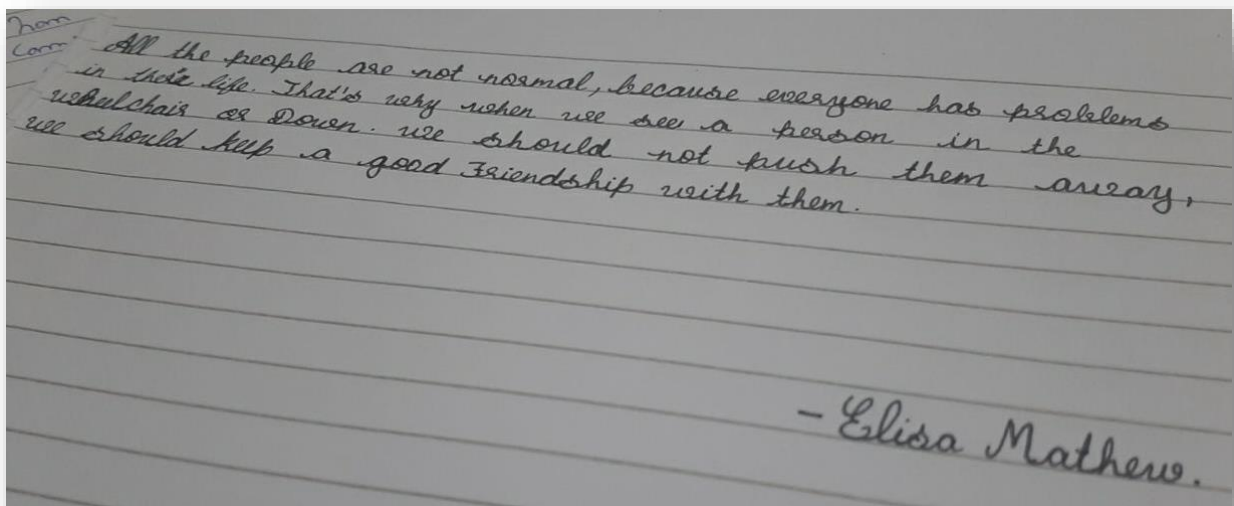 All the people are not normal, because everyone has problems
in their life. That's why when we see a person in the
wheelchair or Down. we should not push them away,
we should keep a good Friendship with them.
- Elisa Mathew.